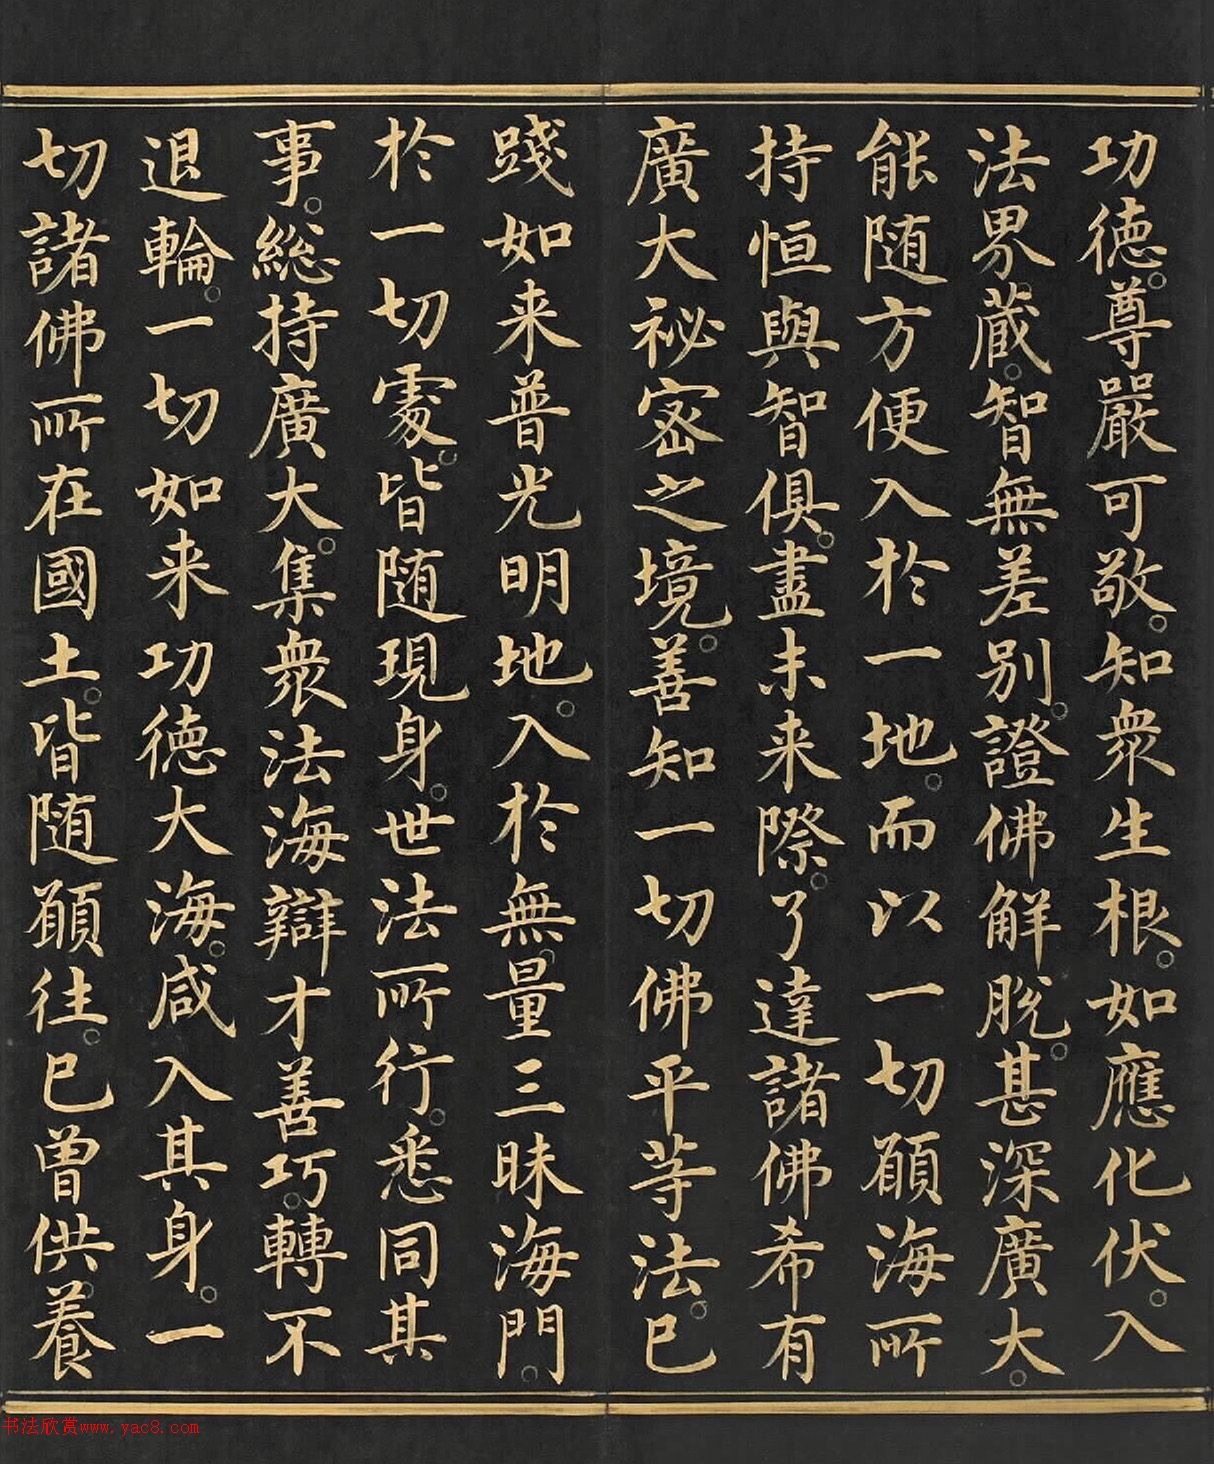 功德尊嚴可敬。知衆生根。如應化伏。入
法界藏。智無差别。證佛解脫。甚深廣大。
能随方便入於一地。而以一切願海所
持恒與智俱。盡未来際。了達諸佛希有
廣大祕密之境。善知一切佛平等法。已
踐如来普光明地。入於無量三昧海門。
於一切處。皆随現身。世法所行。悉同其
事。総持廣大。集衆法海辯才善巧。轉不
退輪。一切如来功德大海。咸入其身。一
切諸佛所在國土。皆随願往。已曾供養
书法欣赏www.yac8.com